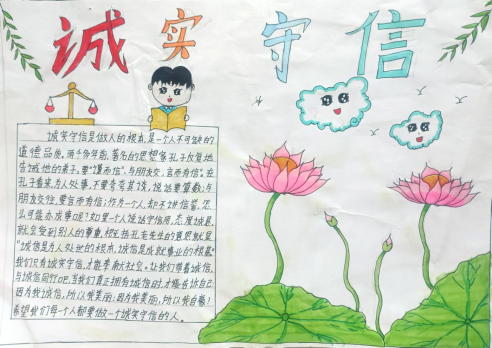 诚实守信
诚实守信是做人的根本,是一个人不可缺的
道德品质。两千多年前,著名的思想家孔子反复地
告诫他的弟子,要“谨而信”,与朋友交,言而有信”。在
孔子看来,为人处事,不要夸夸其谈,说话要算数;与
朋友交往,要言而有信;作为一个人,却不讲信誉,怎
么可能办成事呢?如果一个人说话守信用,态度诚恳,
就会受到别人的尊重,
“诚信是为人处世的根本,诚信是成就事业的根基”
我们只有诚实守信,才能奉献社会。让我们带着诚信,
与诚信同行吧,当我们真正拥有诚信时,才能告诉自己
因为我诚信,所以我美丽;因为我美丽,所以我自豪!
希望我们每一个人都要做一个诚实守信的人。